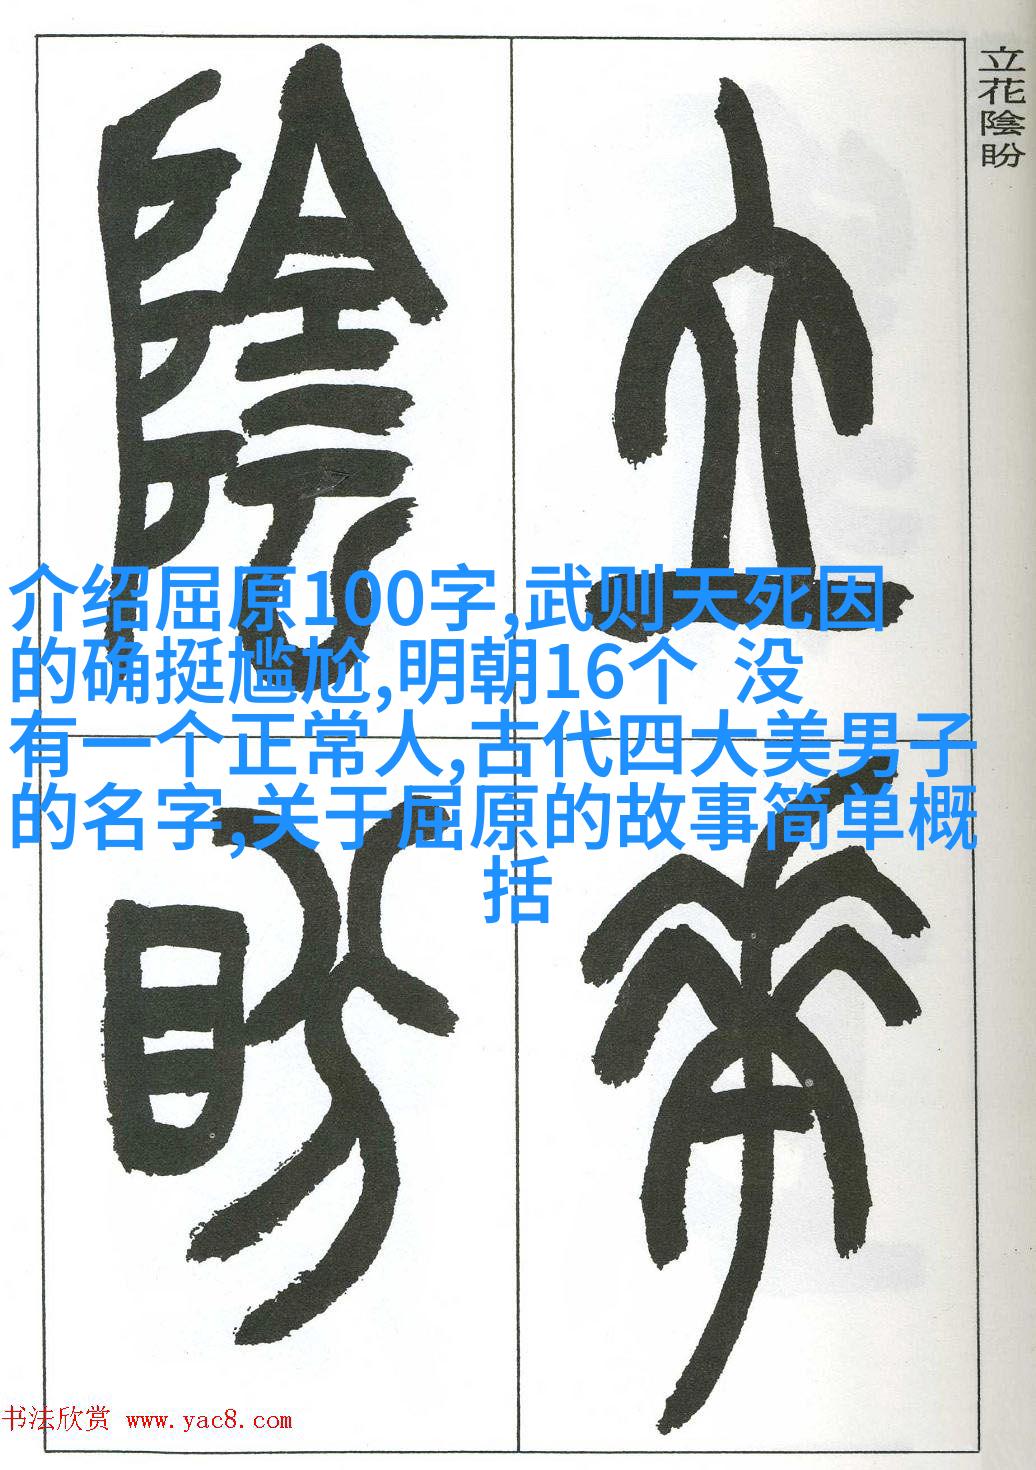 立花陰盼
立
花
陰
盼
介绍屈原100字,武则天死因
的确挺尴尬,明朝16个 没
有一个正常人,古代四大美男子
的名字,关于屈原的故事简单概
括
书法欣赏 www.yac8.com